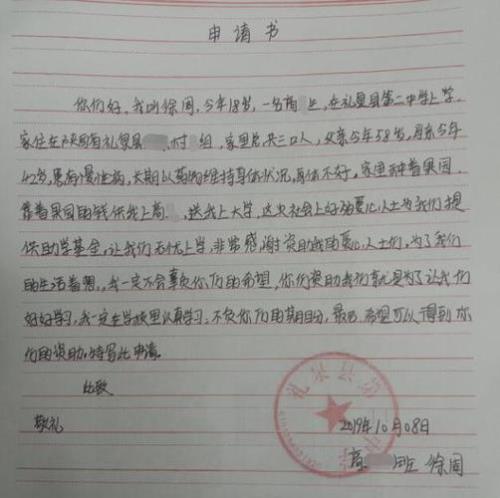 申请书
你们好,我叫徐周,今年18岁,一名高 生,在礼泉县第二中学上学,
家住在陕西省礼泉县 村 组,家里总共三口人,父亲今年58岁,母亲今年
42岁,患有慢性病,长期以药物维持身体状况,身体不好,家里种着果园,
靠着果园的钱供我上高 ,送我上大学,这次社会上好的爱心人士为我们提
供助学基金,让我们无忧上学,非常感谢资助我的爱心人士们,为了我们
的生活着想,我一定不会辜负你们的希望,你们资助我们就是为了让我们
好好学习,我一定在学校里认真学习,不负你们的期盼,最后希望可以得到你
们的资助,特写此申请。
此致
敬礼
2019年10月08日
高 班 徐周
礼泉县